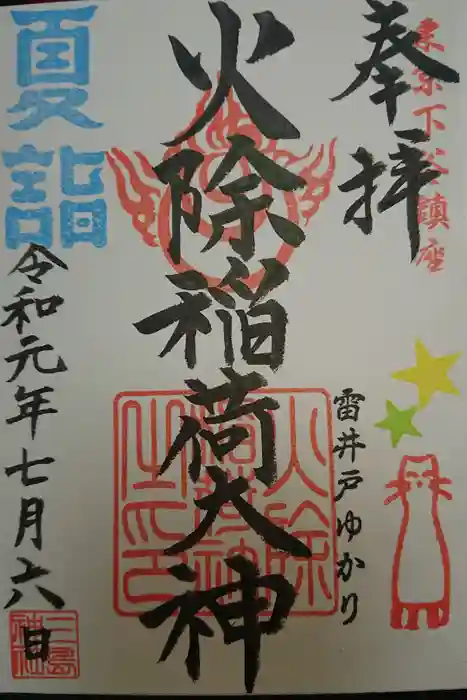 奉拝
東京下谷鎮座
火除稲荷大神
雷井戸ゆかり
夏詣
令和元年七月六日
火除
稲荷大神
之印
三島神社